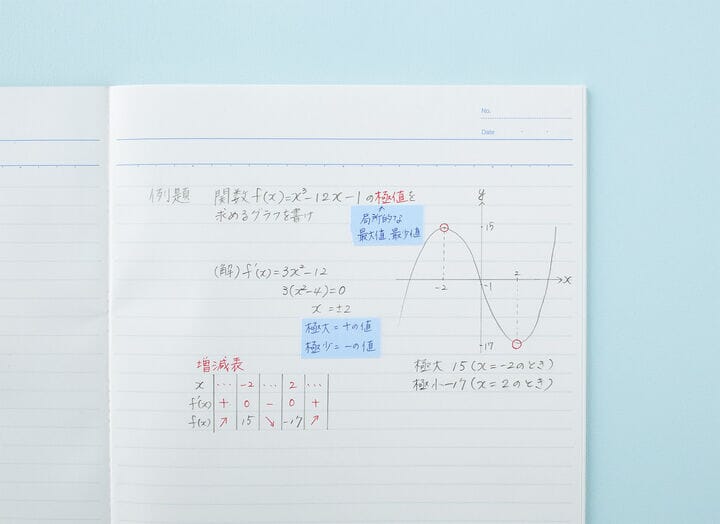 No.
Date
例題 関数 f(x)=x³-12x-1の極値を
求めるグラフを書け
局所的な
最大値、最少値
(解) f'(x)=3x²-12
3(x²-4)=0
x=±2
極大=+の値
極少=-の値
増減表
x … -2 … 2 …
f'(x) + 0 - 0 +
f(x) ↗ 15 ↘ -17 ↗
y
15
2
x
-2
-1
-17
極大 15 (x=-2のとき)
極小-17 (x=2のとき)